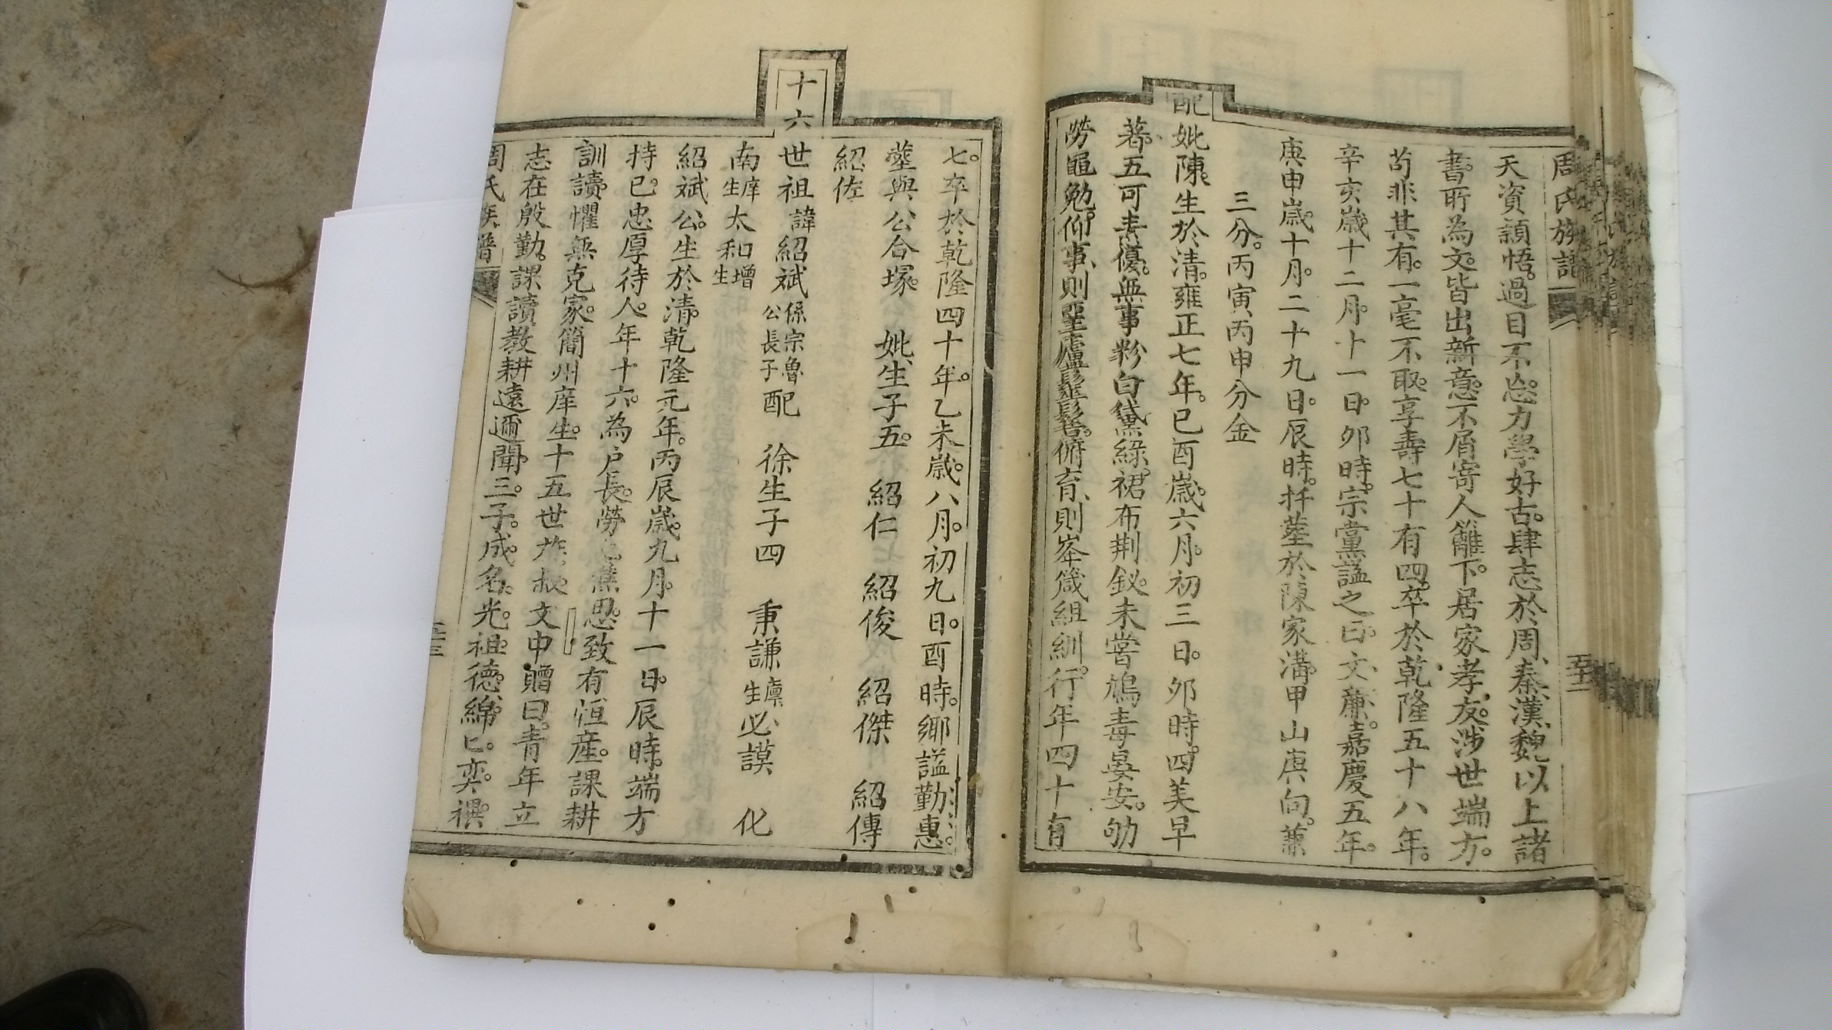 周氏族譜
天資頴悟。過目不忘。力學好古。肆志於周、秦、漢、魏以上諸
書。所為文。皆出新意。不屑寄人籬下。居家孝友。涉世端方。
苟非其有。一毫不取。享壽七十有四。卒於乾隆五十八年。
辛亥歲十二月。十一日。卯時。宗黨諡之曰。文、亷。嘉慶五年。
庚申歲。十月。二十九日。辰時。扦塟於陳家溝。甲山庚向。兼
三分。丙寅丙申分金
配妣陳。生於清。雍正七年。己酉歲。六月。初三日。卯時。四美早
著。五可素優。無事粉白黛綠。裙布荆釵。未嘗鴆毒晏安。劬
勞黽勉。仰事、則堊廬鬆髻。俯育、則夆箴組紃。行年四十有
七。卒於乾隆四十年。乙未歲。八月。初九日。酉時。鄉諡勤惠。
塟與公合塚。 妣、生子五。 紹仁 紹俊 紹傑 紹傳
紹佐
十六世祖諱紹斌係宗魯公長子配 徐生子四 秉謙廪生必謨 化
南庠生太和增生
紹斌公。生於清。乾隆元年。丙辰歲。九月。十一日。辰時。端方
持己。忠厚待人。年十六。為户長。勞 蕉思。致有恒產。課耕
訓讀。懼無克家。簡州庠生。十五世族叔文申贈曰。青年立
志在殷勤。課讀教耕遠邇聞。三子。成名。光。祖。德。綿匕。奕。禩
周氏族譜